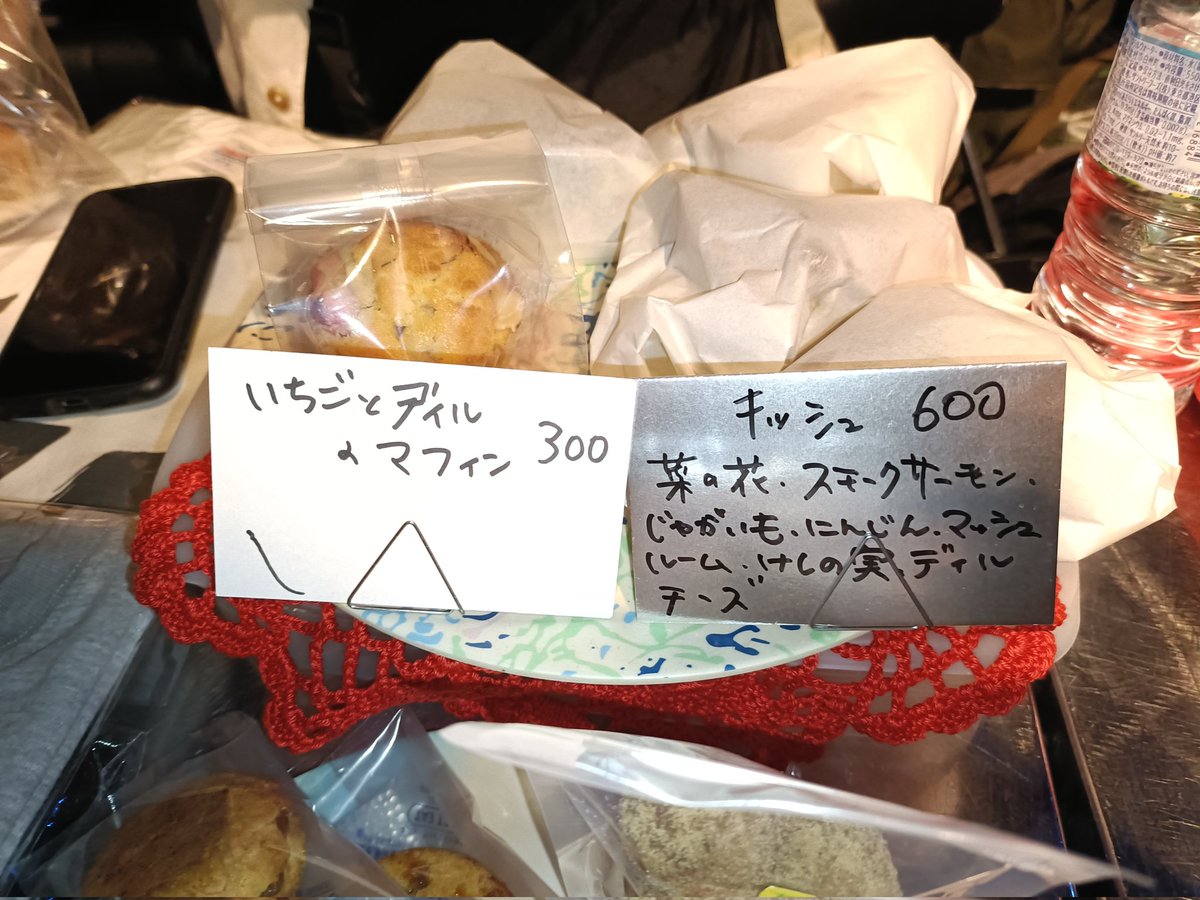 いちごとディル
のマフィン 300
キッシュ 600
菜の花、スモークサーモン、
じゃがいも、にんじん、マッシュ
ルーム、けしの実、ディル
チーズ